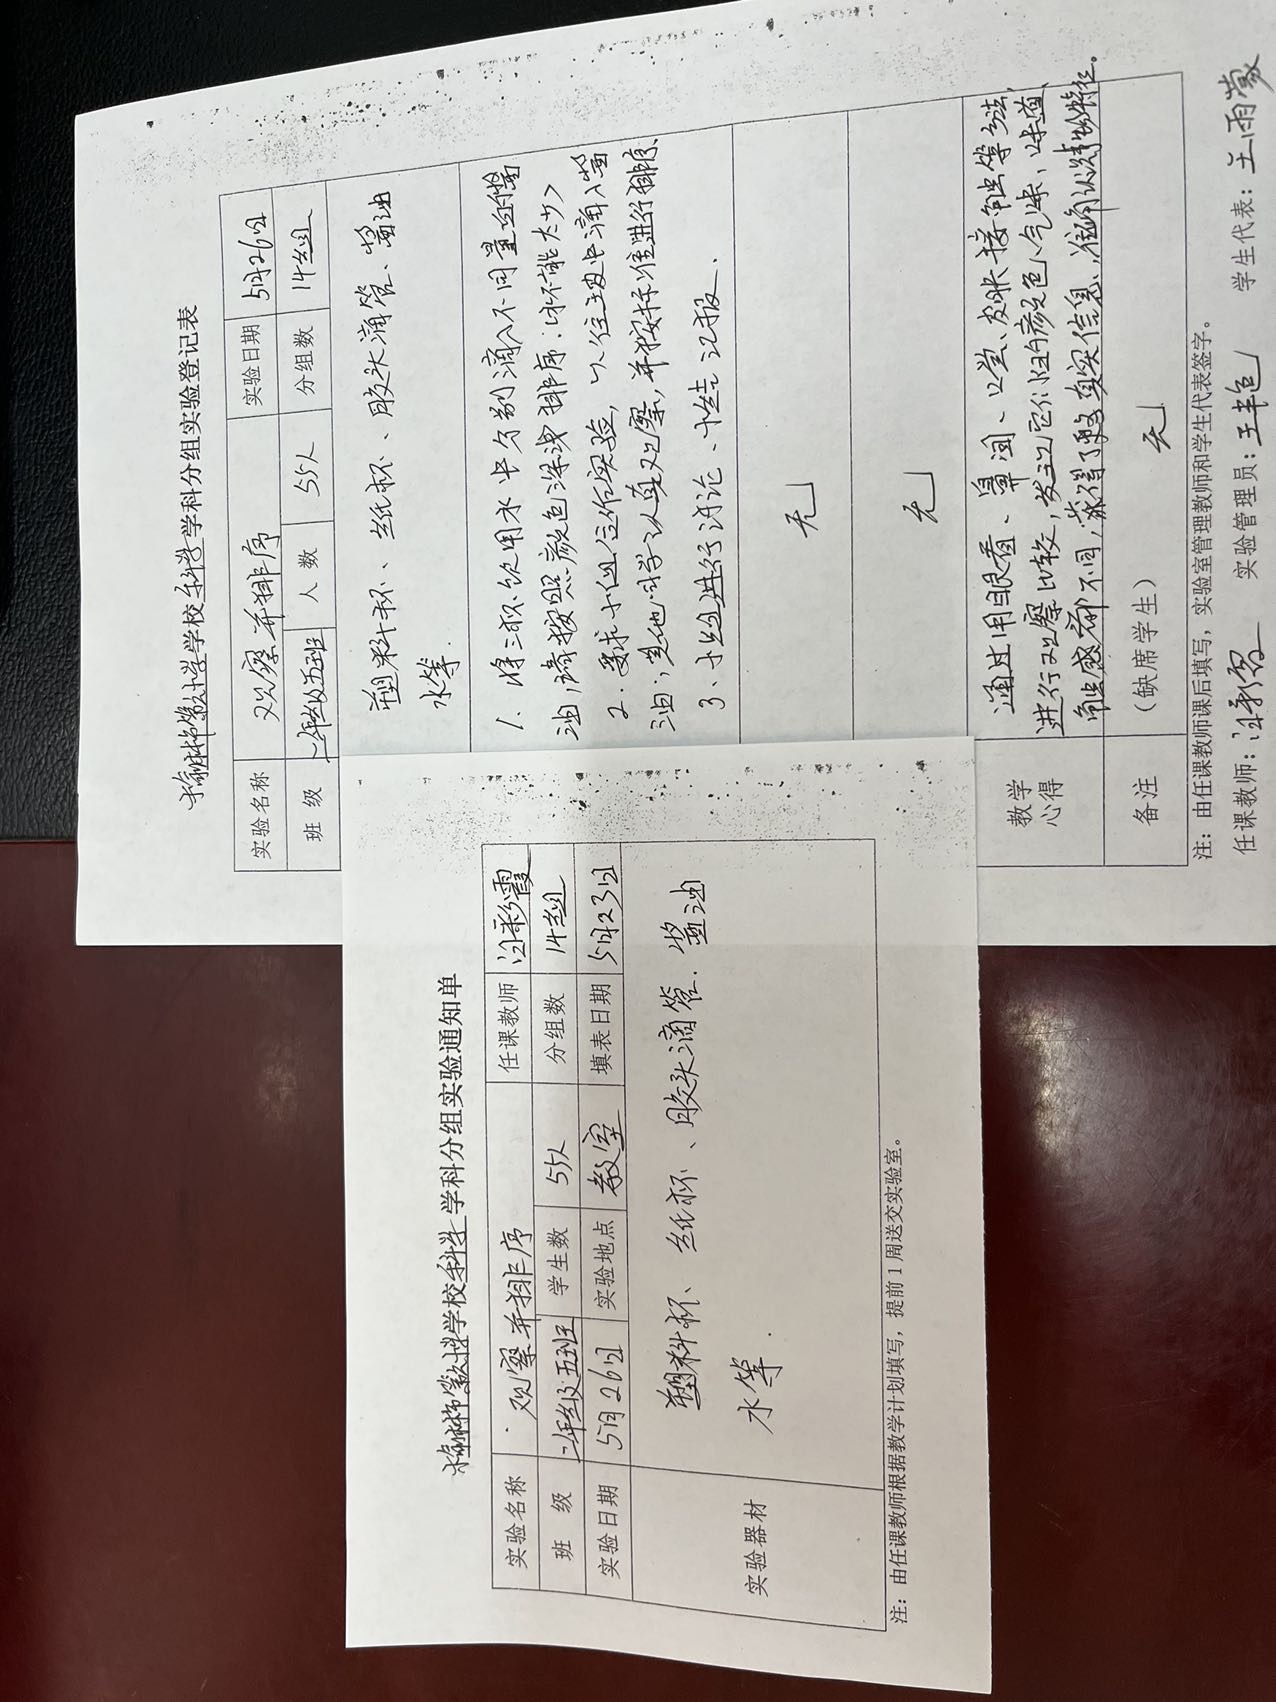 榆林市第十小学学校科学学科分组实验登记表
实验名称 观察并排序 实验日期 5月26日
班 级 二年级五班 人 数 55人 分组数 14组
塑料杯、纸杯、胶头滴管、酱油
水等.
1. 将三杯饮用水中分别滴入不同量的酱
油,请按照颜色深浅排序:(水不能太少)
2. 要求小组合作实验,
油,其他同学认真观察,并按标准进行排序.
3、小组进行讨论、小结汇报.
无
无
教学
心得
通过用眼看、鼻闻、口尝、皮肤接触等方法,
进行观察比较,发现它们的颜色、气味、味道、
触感都不同,获得了真实信息,准确认识事物特征。
备注 (缺席学生) 无
注：由任课教师课后填写，实验室管理教师和学生代表签字。
任课教师：汪彩霞 实验管理员： 学生代表：王雨蒙
榆林市第十小学学校科学学科分组实验通知单
实验名称 观察并排序 任课教师 汪彩霞
班 级 二年级五班 学生数 55人 分组数 14组
实验日期 5月26日 实验地点 教室 填表日期 5月23日
实验器材
塑料杯、纸杯、胶头滴管、酱油
水等.
注：由任课教师根据教学计划填写，提前1周送交实验室。